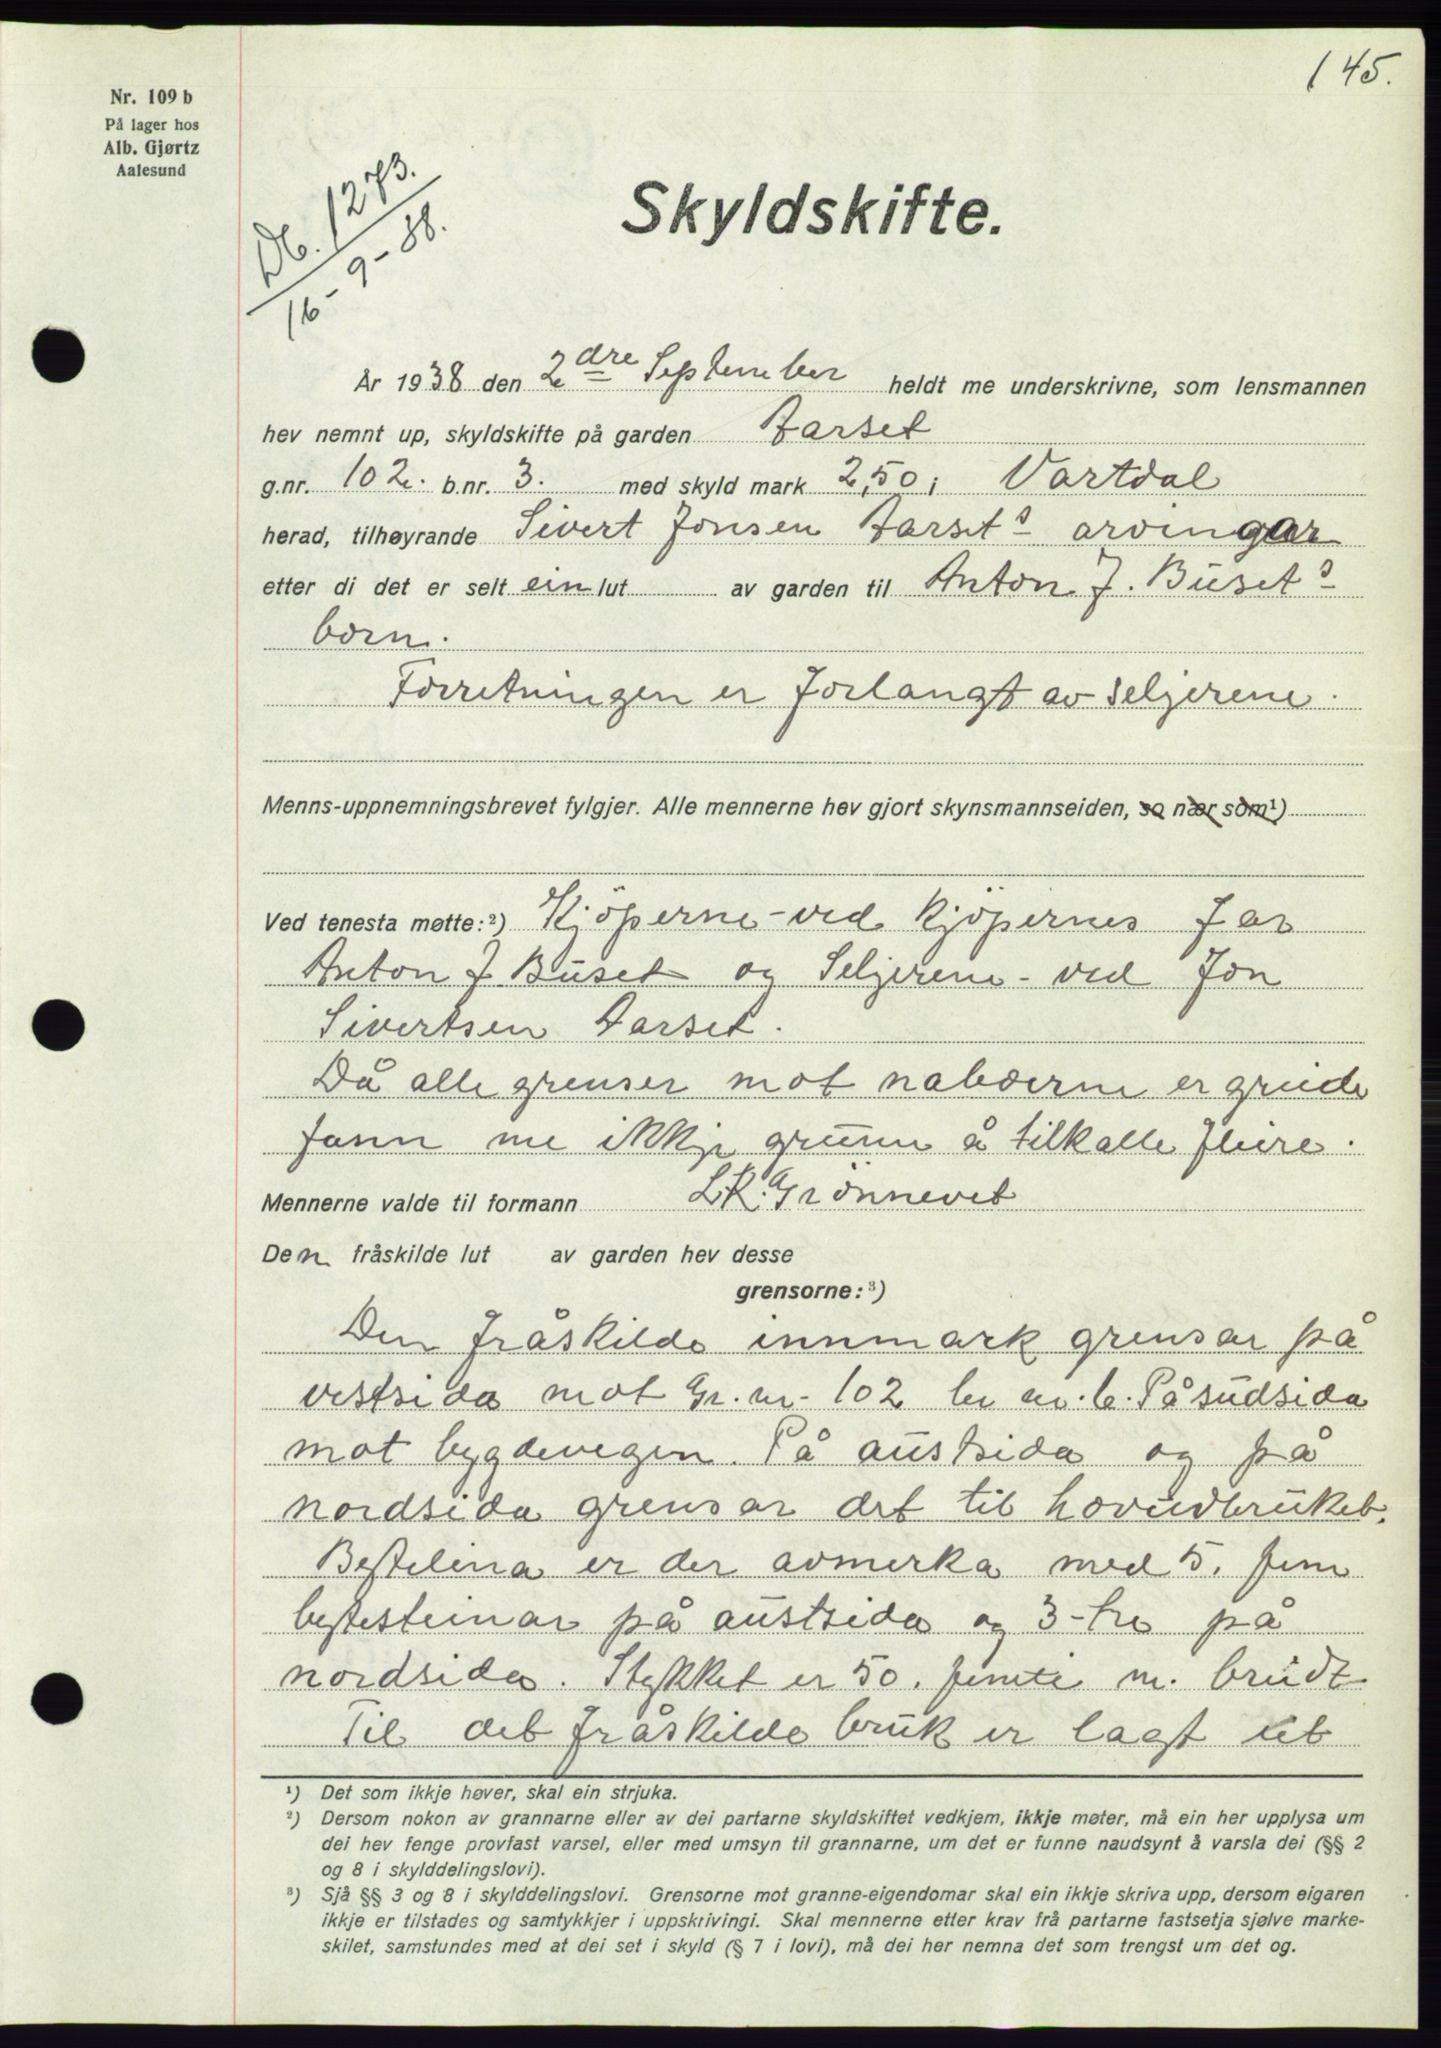 145.
Nr. 109 b
På lager hos
Alb. Gjørtz
Aalesund
Db. 1273.
16-9-38.
Skyldskifte.
År 1938 den 2dre September heldt me underskrivne, som lensmannen
hev nemnt up, skyldskifte på garden Aarset
g.nr. 102. b.nr. 3. med skyld mark 2,50 i Vartdal
herad, tilhøyrande Sivert Jonsen Aarset's arvingar
etter di det er selt ein lut av garden til Anton J. Buset's
born.
Forretningen er forlangt av seljerene.
Menns-uppnemningsbrevet fylgjer. Alle mennerne hev gjort skynsmannseiden, so nær som¹)
Ved tenesta møtte:²) Kjöperne - ved kjöpernes far
Anton J Buset og Seljerene - ved Jon
Sivertsen Aarset.
Då alle grenser mot naboerne er greide
fann me ikkje grunn å tilkalle fleire.
Mennerne valde til formann L.K. Grönnevet
Den fråskilde lut av garden hev desse
grensorne:³)
Den fråskilde innmark grensar på
vestsida mot Gr. nr. 102 br nr. 6. På sudsida
mot bygdevegen. På austsida og på
nordsida grensar det til hovudbruket.
Bytelina er der avmerka med 5. fem
bytesteinar på austsida og 3-tre på
nordsida. Stykket er 50. femti m. breidt
Til det fråskilde bruk er lagt ut
¹) Det som ikkje høver, skal ein strjuka.
²) Dersom nokon av grannarne eller av dei partarne skyldskiftet vedkjem, ikkje møter, må ein her upplysa um
dei hev fenge provfast varsel, eller med umsyn til grannarne, um det er funne naudsynt å varsla dei (§§ 2
og 8 i skylddelingslovi).
³) Sjå §§ 3 og 8 i skylddelingslovi. Grensorne mot granne-eigendomar skal ein ikkje skriva upp, dersom eigaren
ikkje er tilstades og samtykkjer i uppskrivingi. Skal mennerne etter krav frå partarne fastsetja sjølve marke-
skilet, samstundes med at dei set i skyld (§ 7 i lovi), må dei her nemna det som trengst um det og.